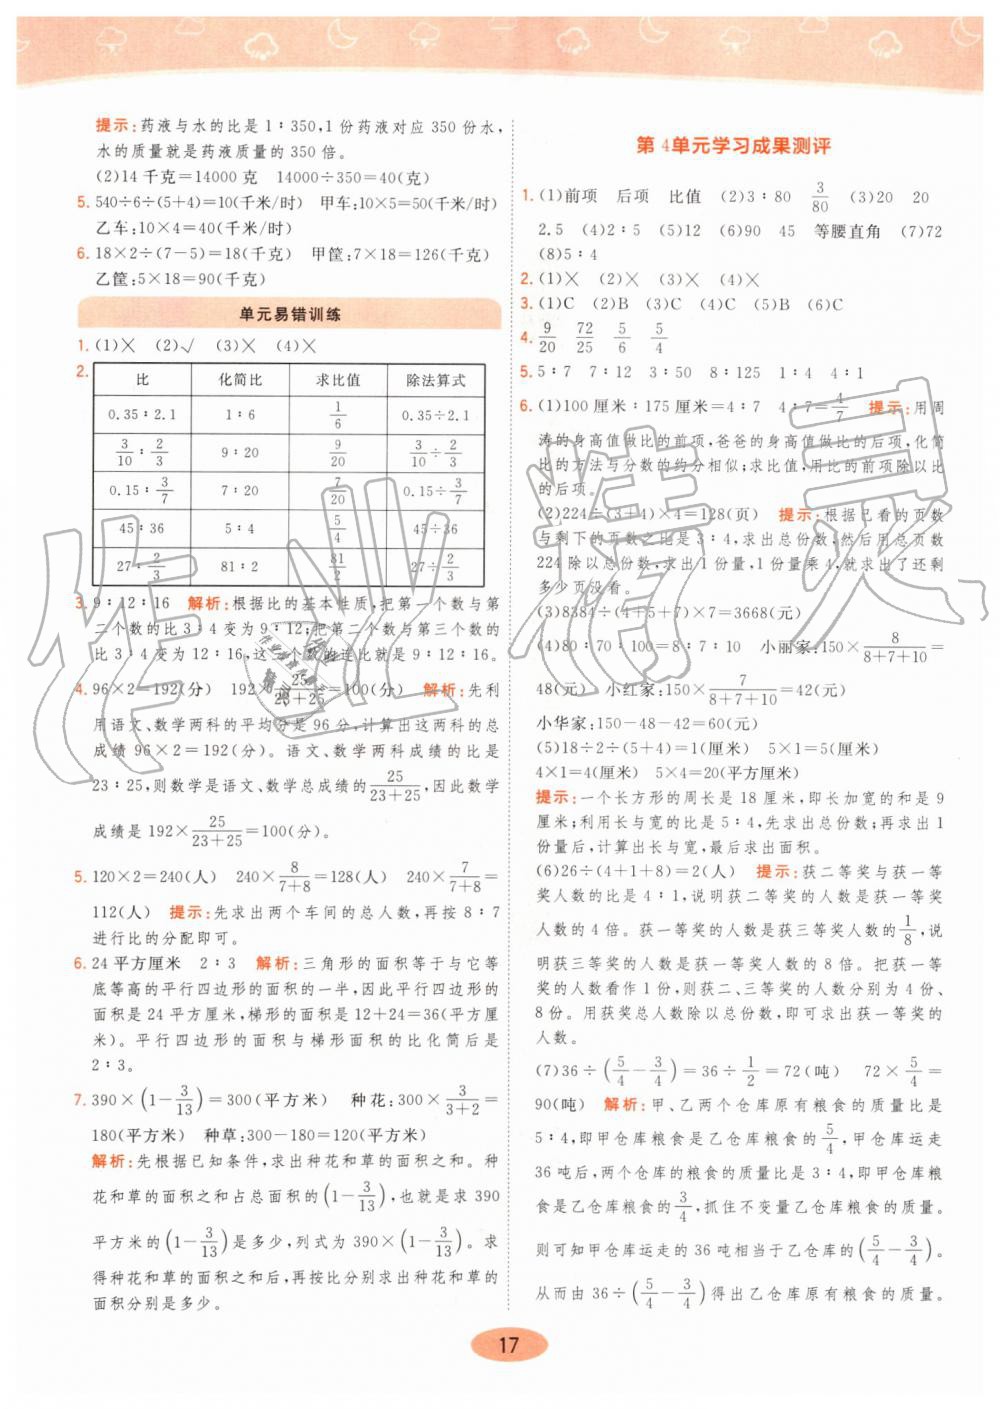 提示:药液与水的比是 1∶350,1 份药液对应 350 份水,
水的质量就是药液质量的 350 倍。
(2)14 千克=14000 克 14000÷350=40(克)
5. 540÷6÷(5+4)=10(千米/时) 甲车:10×5=50(千米/时)
乙车:10×4=40(千米/时)
6. 18×2÷(7−5)=18(千克) 甲筐:7×18=126(千克)
乙筐:5×18=90(千克)
单元易错训练
1. (1)× (2)√ (3)× (4)×
2.
比 化简比 求比值 除法算式
0.35∶2.1 1∶6 1/6 0.35÷2.1
3/10∶2/3 9∶20 9/20 3/10÷2/3
0.15∶3/7 7∶20 7/20 0.15÷3/7
45∶36 5∶4 5/4 45÷36
27∶2/3 81∶2 81/2 27÷2/3
3. 9∶12∶16 解析:根据比的基本性质,把第一个数与第
二个数的比 3∶4 变为 9∶12;把第二个数与第三个数的
比 3∶4 变为 12∶16,这三个数的连比就是 9∶12∶16。
4. 96×2=192(分) 192×25/23+25=100(分) 解析:先利
用语文、数学两科的平均分是 96 分,计算出这两科的总
成绩 96×2=192(分)。语文、数学两科成绩的比是
23∶25,则数学是语文、数学总成绩的25/23+25,因此数学
成绩是 192×25/23+25=100(分)。
5. 120×2=240(人) 240×8/7+8=128(人) 240×7/7+8=
112(人) 提示:先求出两个车间的总人数,再按 8∶7
进行比的分配即可。
6. 24 平方厘米 2∶3 解析:三角形的面积等于与它等
底等高的平行四边形的面积的一半,因此平行四边形的
面积是 24 平方厘米,梯形的面积是 12+24=36(平方厘
米)。平行四边形的面积与梯形面积的比化简后是
2∶3。
7. 390×(1−3/13)=300(平方米) 种花:300×3/3+2=
180(平方米) 种草:300−180=120(平方米)
解析:先根据已知条件,求出种花和草的面积之和。种
花和草的面积之和占总面积的(1−3/13),也就是求 390
平方米的(1−3/13)是多少,列式为 390×(1−3/13)。求
得种花和草的面积之和后,再按比分别求出种花和草的
面积分别是多少。
第 4单元学习成果测评
1. (1)前项 后项 比值 (2)3∶80 3/80 (3)20 20
2.5 (4)2∶5 (5)12 (6)90 45 等腰直角 (7)72
(8)5∶4
2. (1)× (2)× (3)× (4)×
3. (1)C (2)B (3)C (4)B (5)B (6)C
4. 9/20 72/25 5/6 5/4
5. 5∶7 7∶30 8∶125 1∶4 4∶1
6. (1)100 厘米∶175 厘米=4∶7 4∶7=4/7 提示:用周
涛的身高值做比的前项,爸爸的身高值做比的后项,化简
比的方法与分数的约分相似;求比值,用比的前项除以比
的后项。
(2)224÷(3+4)×4=128(页) 提示:根据已看的页数
与剩下的页数之比是 3∶4,求出总份数,然后用总页数
224 除以总份数,求出 1 份量,1 份量乘 4,就求出了还剩
多少页没看。
(3)8384÷(4+5+7)×7=3668(元)
(4)80∶70∶100=8∶7∶10 小丽家:150×8/8+7+10=
48(元) 小红家:150×7/8+7+10=42(元)
小华家:150−48−42=60(元)
(5)18÷2÷(5+4)=1(厘米) 5×1=5(厘米)
4×1=4(厘米) 5×4=20(平方厘米)
提示:一个长方形的周长是 18 厘米,即长加宽的和是 9
厘米;利用长与宽的比是 5∶4,先求出总份数;再求出 1
份量后,计算出长与宽,最后求出面积。
(6)26÷(4+1+8)=2(人) 提示:获二等奖与获一等
奖人数的比是 4∶1,说明获二等奖的人数是获一等奖
人数的 4 倍。获一等奖的人数是获三等奖人数的1/8,说
明获三等奖的人数是获一等奖人数的 8 倍。把获一等
奖的人数看作 1 份,则获二、三等奖的人数分别为 4 份、
8 份。用获奖总人数除以总份数,即可求出获一等奖的
人数。
(7)36÷(5/4−3/4)=36÷1/2=72(吨) 72×5/4=
90(吨) 解析:甲、乙两个仓库原有粮食的质量比是
5∶4,即甲仓库粮食是乙仓库粮食的5/4,甲仓库运走
36 吨后,两个仓库的粮食的质量比是 3∶4,即甲仓库粮
食是乙仓库粮食的3/4,抓住不变量乙仓库粮食的质量,
则可知甲仓库运走的 36 吨相当于乙仓库的(5/4−3/4)。
从而由 36÷(5/4−3/4)得出乙仓库原有粮食的质量。
17
作业精灵